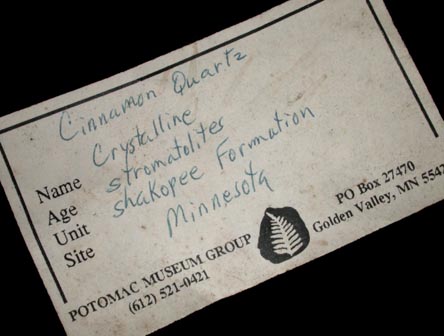 Cinnamon Quartz
Name Crystalline
Age stromatolites
Unit Shakopee Formation
Site Minnesota
POTOMAC MUSEUM GROUP
(612) 521-0421
PO Box 27470
Golden Valley, MN 5547